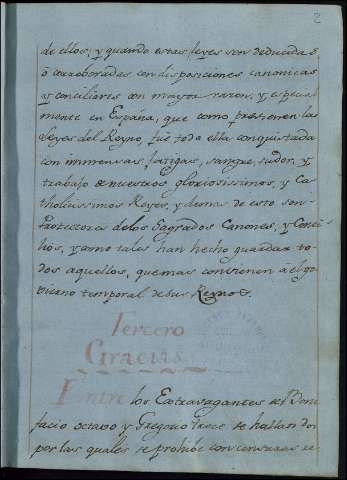 2
de ellos; y quando estas leyes son deducidas
ò corroboradas con disposiciones canonicas
y conciliares con mayor razon, y especial
mente en España, que como previenen las
Leyes del Reyno, fue toda ella conquistada
con inmensas fatigas, sangre, sudor, y
trabajo de nuestros gloriosissimos, y Ca
tholicissimos Reyes, y demas de esto son
Protectores de los Sagrados Canones, y Conci
lios, y como tales han hecho guardar to
dos aquellos, que mas convienen à el go
vierno temporal de sus Reynos.
Tercero
Gracias
Entre los Extravagantes de Boni
facio octavo y Gregorio trece se hallan dos
por las quales se prohibe con censuras